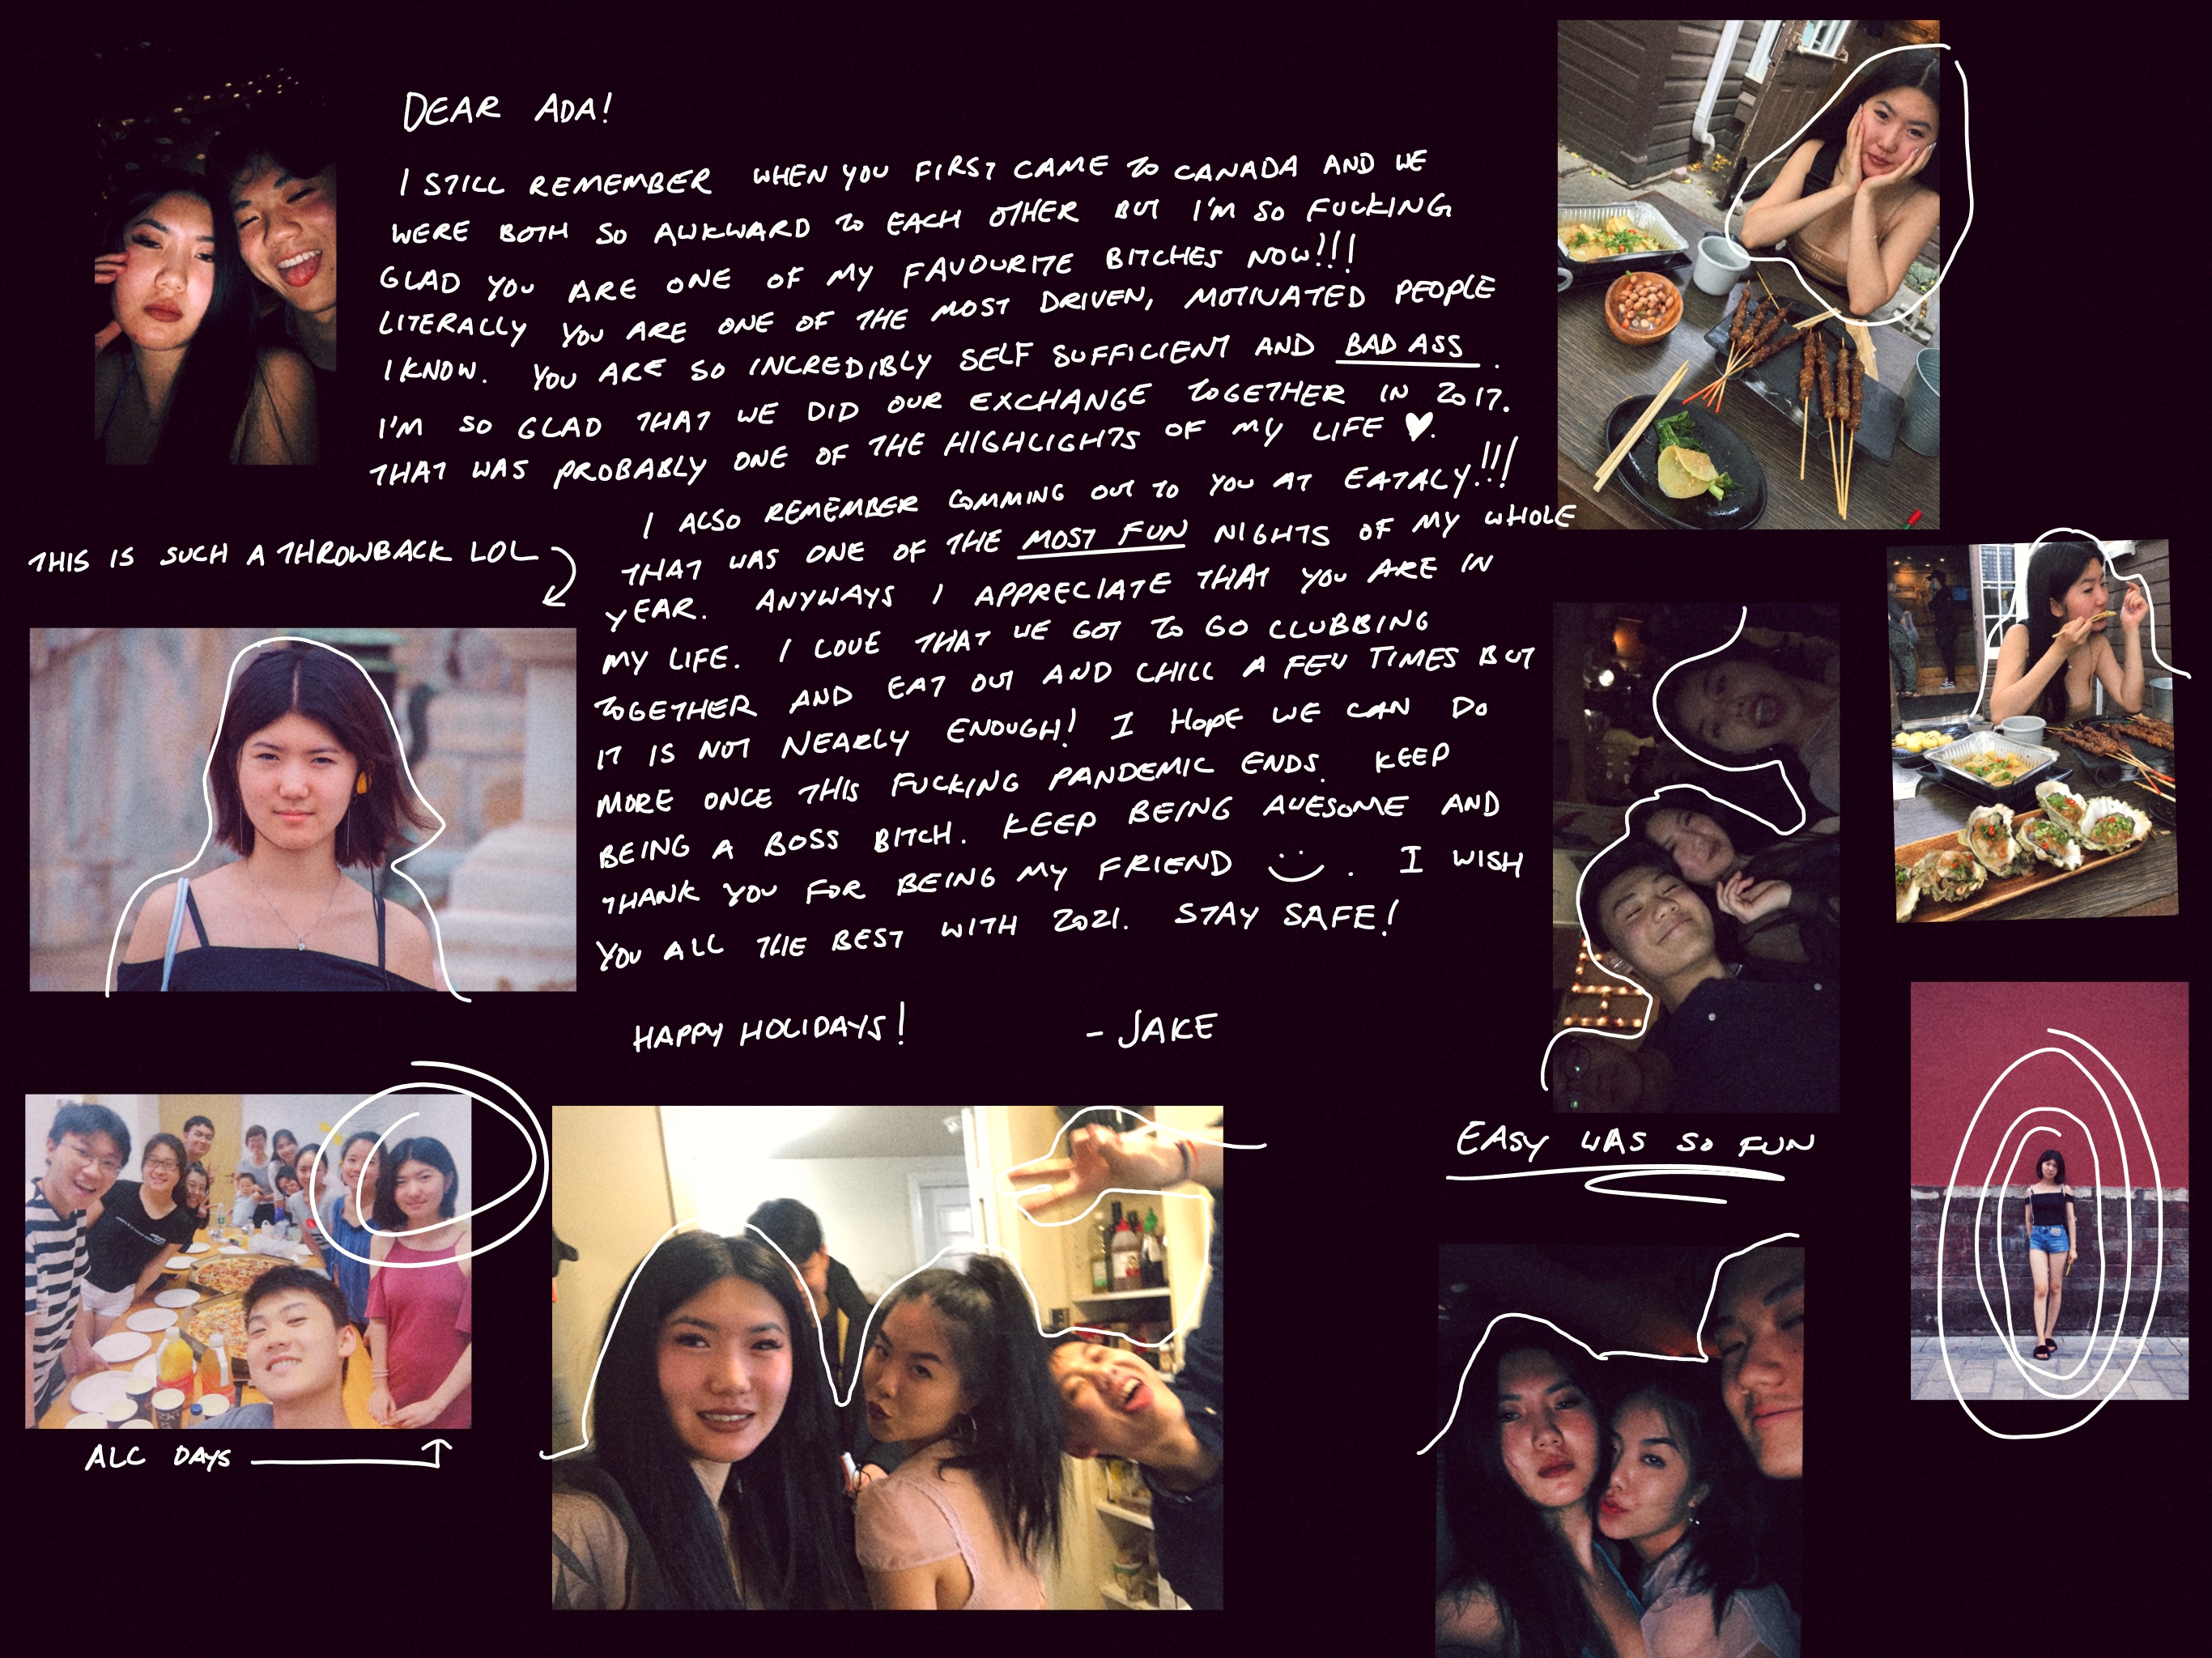 DEAR ADA!
I STILL REMEMBER WHEN YOU FIRST CAME TO CANADA AND WE
WERE BOTH SO AWKWARD TO EACH OTHER BUT I'M SO FUCKING
GLAD YOU ARE ONE OF MY FAVOURITE BITCHES NOW!!!
LITERALLY YOU ARE ONE OF THE MOST DRIVEN, MOTIVATED PEOPLE
I KNOW. YOU ARE SO INCREDIBLY SELF SUFFICIENT AND BAD ASS.
I'M SO GLAD THAT WE DID OUR EXCHANGE TOGETHER IN 2017.
THAT WAS PROBABLY ONE OF THE HIGHLIGHTS OF MY LIFE ♥.
I ALSO REMEMBER COMMING OUT TO YOU AT EATALY!!!
THAT WAS ONE OF THE MOST FUN NIGHTS OF MY WHOLE
YEAR. ANYWAYS I APPRECIATE THAT YOU ARE IN
MY LIFE. I LOVE THAT WE GOT TO GO CLUBBING
TOGETHER AND EAT OUT AND CHILL A FEW TIMES BUT
IT IS NOT NEARLY ENOUGH! I HOPE WE CAN DO
MORE ONCE THIS FUCKING PANDEMIC ENDS. KEEP
BEING A BOSS BITCH. KEEP BEING AWESOME AND
THANK YOU FOR BEING MY FRIEND :). I WISH
YOU ALL THE BEST WITH 2021. STAY SAFE!
HAPPY HOLIDAYS! - JAKE
THIS IS SUCH A THROWBACK LOL
ALC DAYS
EASY WAS SO FUN